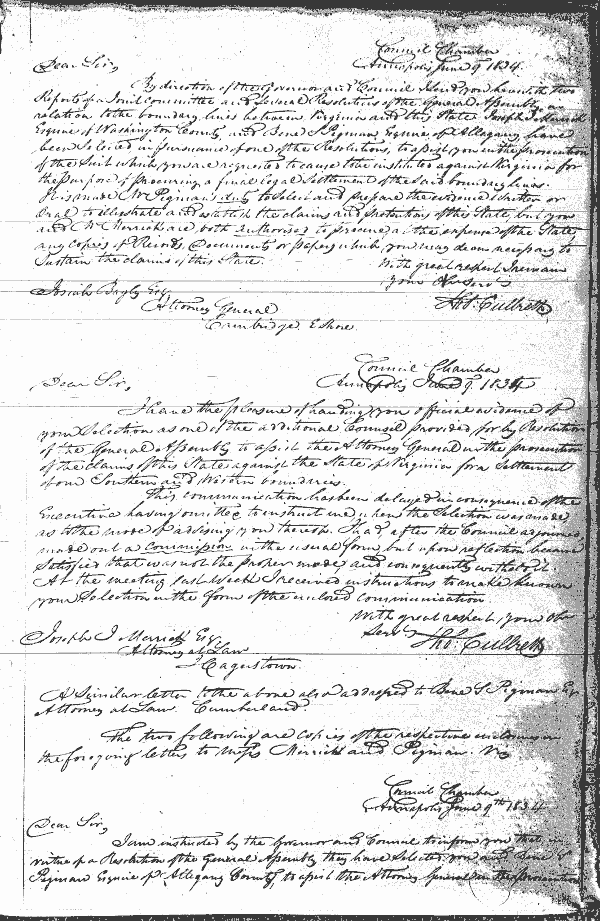 Council Chamber
Annapolis June 9. 1834.
Dear Sir,
By direction of the Governor and Council I send you herewith two
Reports of a Joint Committee and several Resolutions of the General Assembly, in
relation to the boundary lines between Virginia and this State. Joseph I Merrick
Esquire of Washington County, and Bene S Pigman, Esquire of Allegany have
been selected in pursuance of one of the Resolutions, to assist you in the prosecution
of the Suit which you are requested to cause to be instituted against Virginia for
the purpose of procuring a final legal settlement of the said boundary lines.
It is made Mr Pigman's duty to select and prepare the evidence written or
Oral to illustrate and establish the claims and pretentions of this State, but you
and Mr Merrick are both authorised to procure at the expense of the State
any Copies of Records, Documents or papers which you may deem necessary to
Sustain the claims of this State.
With great respect I remain
your Ob Servt
Josiah Bayly Esq.
Thos. Culbreth
Attorney General
Cambridge E Shore.
Council Chamber
Annapolis June 9. 1834
Dear Sir,
I have the pleasure of handing you official evidence of
your Selection as one of the additional Counsel provided for by Resolution
of the General Assembly to assist the Attorney General in the prosecution
of the claims of this State against the State of Virginia for a Settlement
of our Southern and Western boundaries.
This communication has been delayed in consequence of the
Executive having omitted to instruct me when the Selection was made
as to the mode of advising you thereof. I had, after the Council adjourned,
made out a Commission in the usual form, but upon reflection became
Satisfied that was not the proper mode and consequently withheld it.
At the meeting last Week I received instructions to make known
your Selection in the form of the enclosed communication
With great respect, your Ob
Servt
Joseph I Merrick Esq.
Thos. Culbreth
Attorney at Law
Hagerstown.
A Similar letter to the above also addressed to Bene S Pigman Esq
Attorney at Law. Cumberland.
The two following are copies of the respective enclosures in
the foregoing letters to Messrs Merrick and Pigman. Viz
Council Chamber
Annapolis June 9th 1834
Dear Sir,
I am instructed by the Governor and Council to inform you that in
virtue of a Resolution of the General Assembly they have Selected you and Bene S
Pigman Esquire of Allegany County, to assist the Attorney General in the prosecution